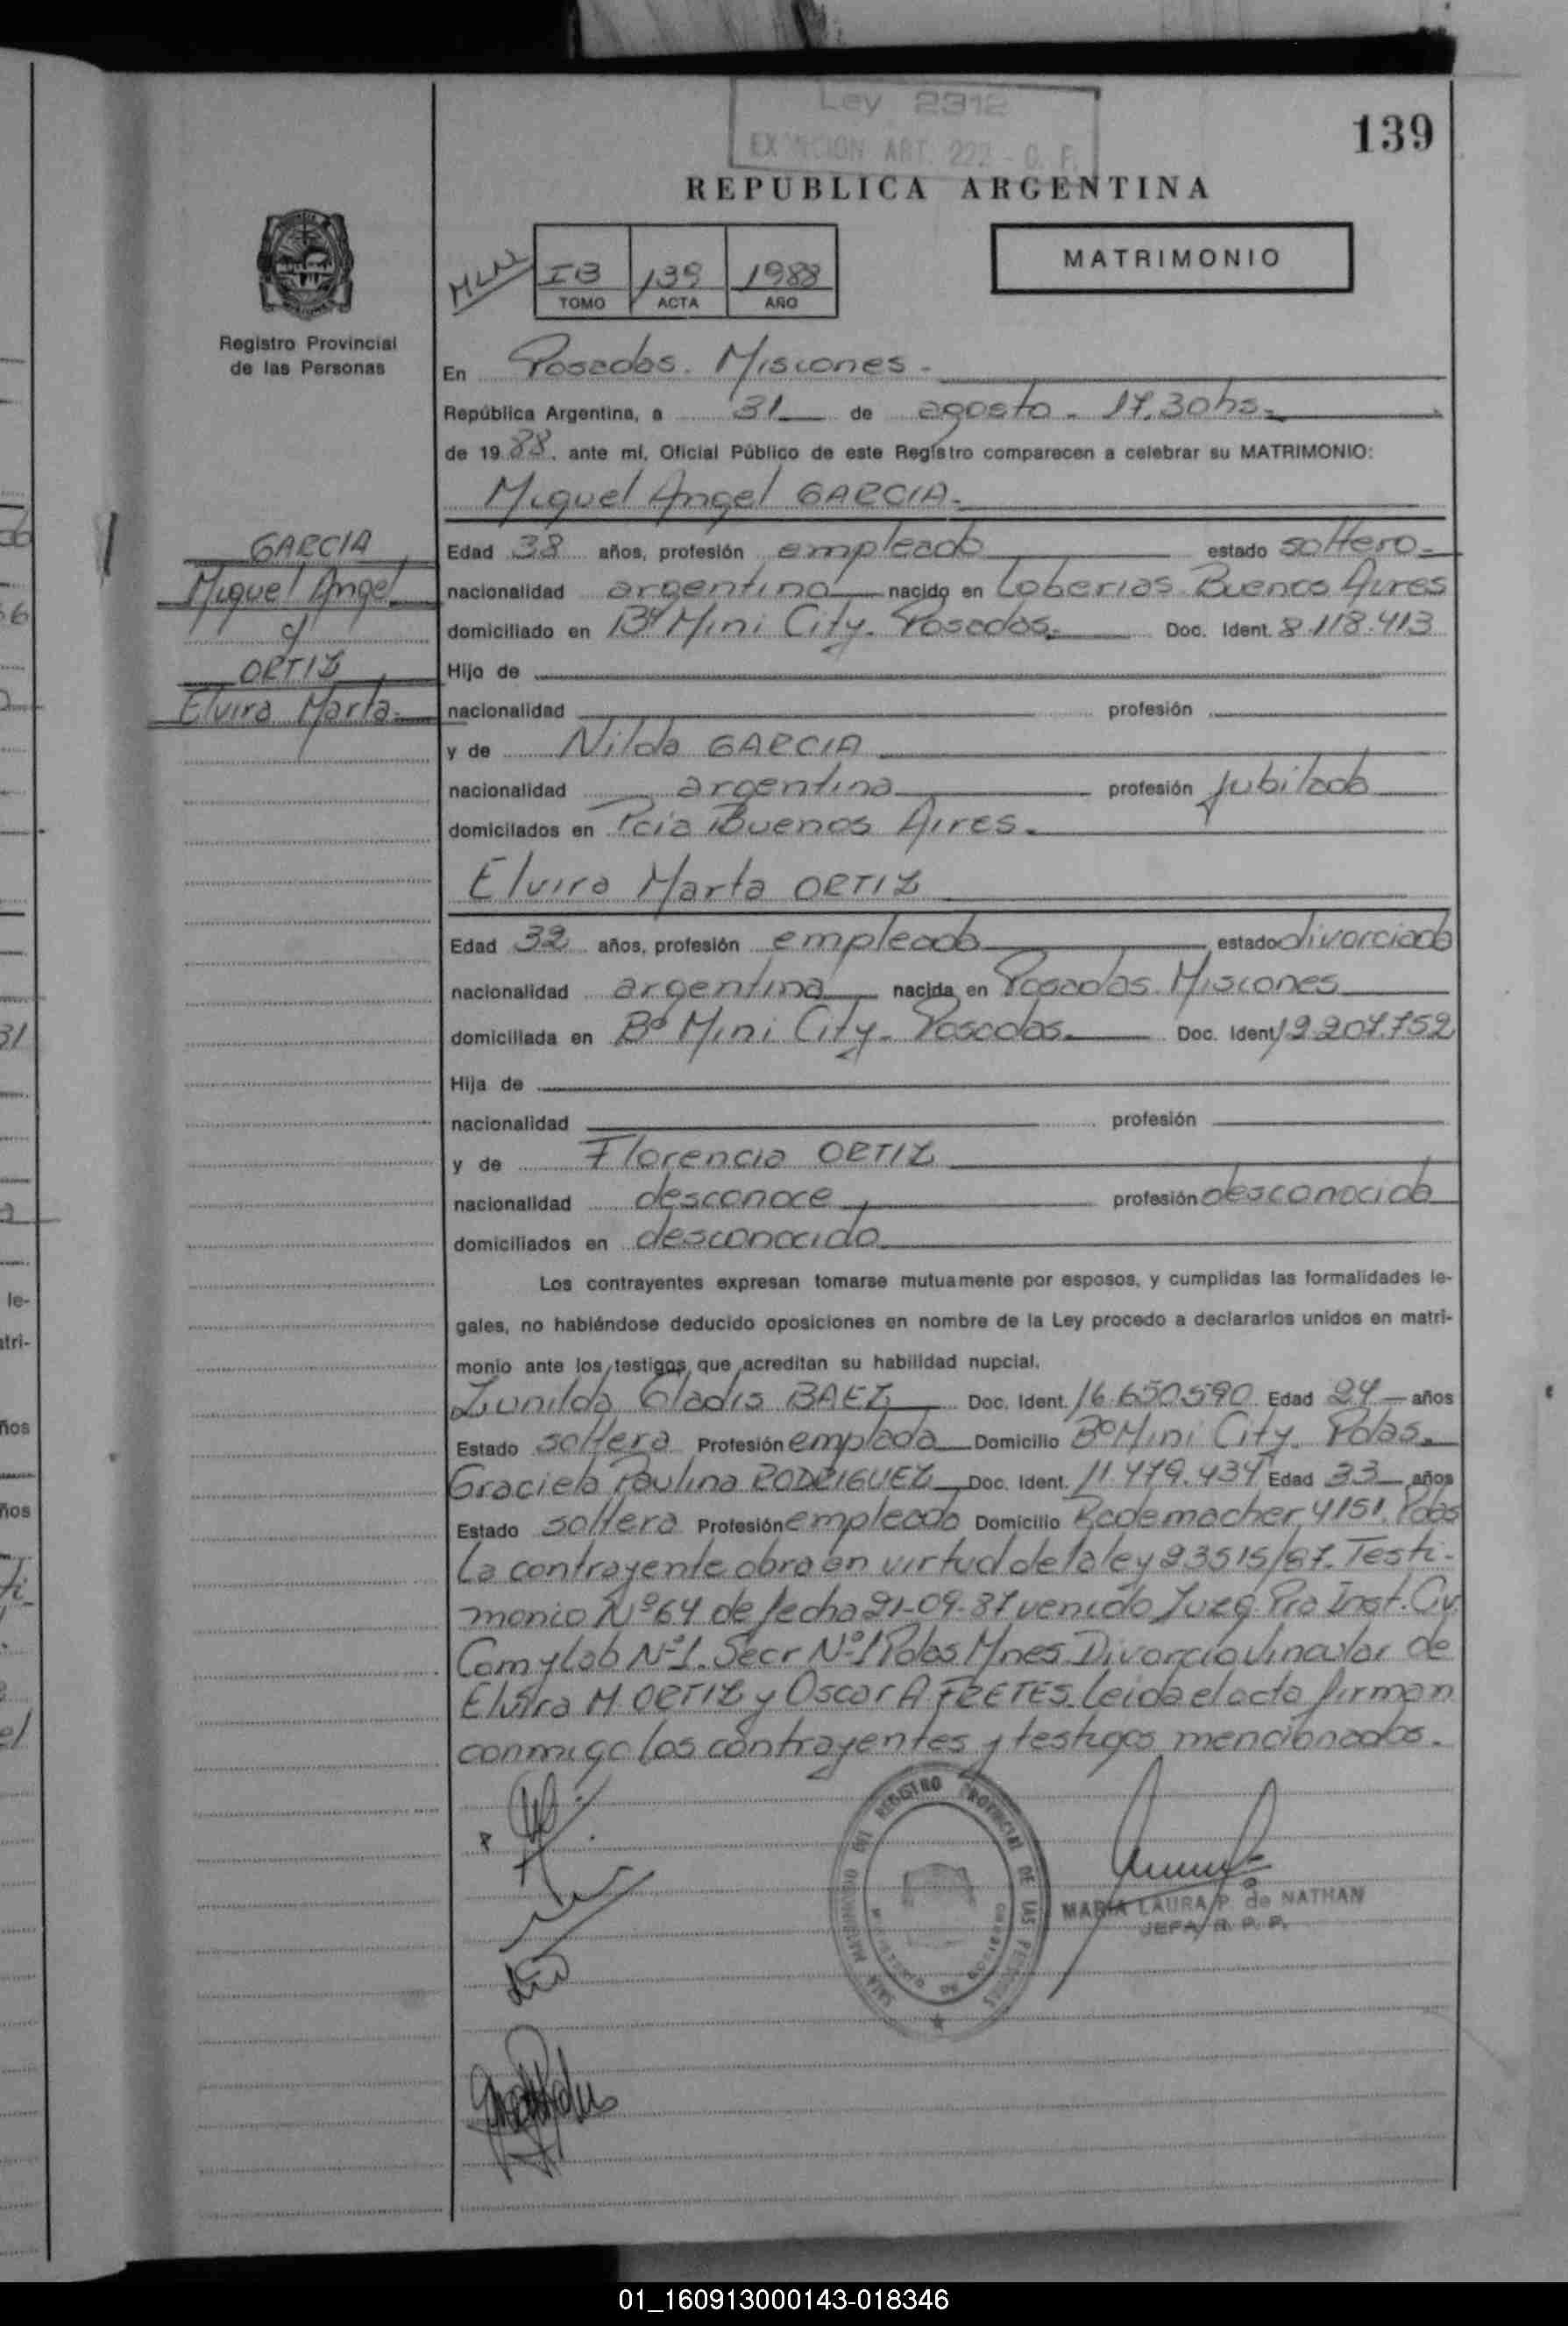 Ley 2312
ART. 222 - C. F.
139
REPUBLICA ARGENTINA
MLN
IB 139 1988
TOMO ACTA AÑO
MATRIMONIO
Registro Provincial
de las Personas
En Posadas. Misiones.
República Argentina, a 31 de agosto - 17.30hs.
de 1988. ante mí, Oficial Público de este Registro comparecen a celebrar su MATRIMONIO:
Miguel Angel GARCIA.
GARCIA
Miguel Angel
y
ORTIZ
Elvira Marta
Edad 38 años, profesión empleado estado soltero
nacionalidad argentina nacido en Loberias Buenos Aires
domiciliado en Bº Mini City. Posadas. Doc. Ident. 8.118.413
Hijo de
nacionalidad profesión
y de Nilda GARCIA
nacionalidad argentina profesión jubilada
domicilados en Pcia Buenos Aires.
Elvira Marta ORTIZ
Edad 32 años, profesión empleada estado divorciada
nacionalidad argentina nacida en Posadas Misiones
domiciliada en Bº Mini City. Posadas. Doc. Ident. 12207.752
Hija de
nacionalidad profesión
y de Florencia ORTIZ
nacionalidad desconoce profesión desconocida
domiciliados en desconocido
Los contrayentes expresan tomarse mutuamente por esposos, y cumplidas las formalidades le-
gales, no habiéndose deducido oposiciones en nombre de la Ley procedo a declararlos unidos en matri-
monio ante los testigos que acreditan su habilidad nupcial.
Zunilda Gladis BAEZ Doc. Ident. 16.650.590 Edad 24 años
Estado soltera Profesión emplada Domicilio Bº Mini City. Pdas.
Graciela Paulina RODRIGUEZ Doc. Ident. 11.479.434 Edad 33 años
Estado soltera Profesión empleada Domicilio Rademacher 4151. Pdas
La contrayente obra en virtud de la ley 23515/87. Testi-
monio Nº 64 de fecha 21-09-87 venido Juzg. Pro Inst. Civ.
Com y Lab Nº 1. Secr Nº 1 Pdas Mnes Divorcio vincular de
Elvira M. ORTIZ y Oscar A. FRETES. Leida el acta firman
conmigo los contrayentes y testigos mencionados.
REGISTRO PROVINCIAL DE LAS PERSONAS
MARIA LAURA P. de NATHAN
JEFA R. P. P.
01_160913000143-018346